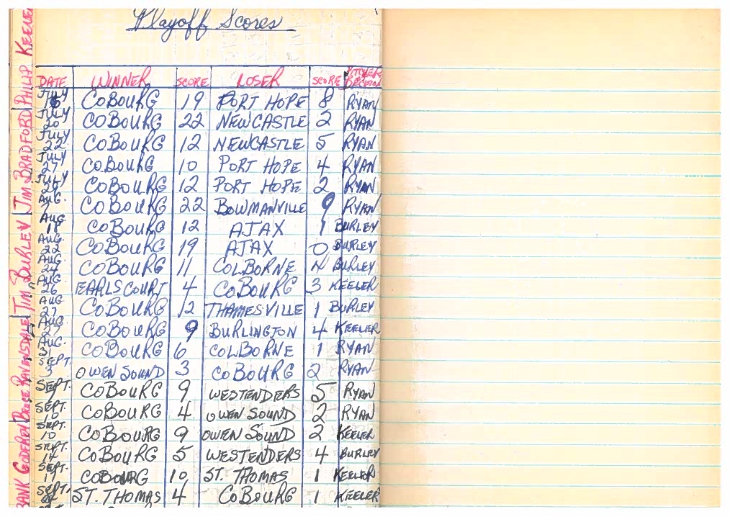 Playoff Scores
DATE WINNER SCORE LOSER SCORE
JULY 16 COBOURG 19 PORT HOPE 8 RYAN
JULY 20 COBOURG 22 NEWCASTLE 2 RYAN
JULY 22 COBOURG 12 NEWCASTLE 5 RYAN
JULY 27 COBOURG 10 PORT HOPE 4 RYAN
JULY 29 COBOURG 12 PORT HOPE 2 RYAN
AUG. COBOURG 22 BOWMANVILLE 9 RYAN
AUG 18 COBOURG 12 AJAX 1 BURLEY
AUG. 22 COBOURG 19 AJAX 0 BURLEY
AUG. 24 COBOURG 11 COLBORNE BURLEY
AUG 26 EARLSCOURT 4 COBOURG 3 KEELER
AUG 27 COBOURG 12 THAMESVILLE 1 BURLEY
AUG. 27 COBOURG 9 BURLINGTON 4 KEELER
AUG. 31 COBOURG 6 COLBORNE 1 RYAN
SEPT. 3 OWEN SOUND 3 COBOURG 2 RYAN
SEPT. COBOURG 9 WESTENDERS 5 RYAN
SEPT. 10 COBOURG 4 OWEN SOUND 2 RYAN
SEPT. 10 COBOURG 9 OWEN SOUND 2 KEELER
SEPT. 14 COBOURG 5 WESTENDERS 4 BURLEY
SEPT. 17 COBOURG 10 ST. THOMAS 1 KEELER
SEPT. ST. THOMAS 4 COBOURG 1 KEELER
TIM BURLEY JIM BRADFORD PHILIP KEELER